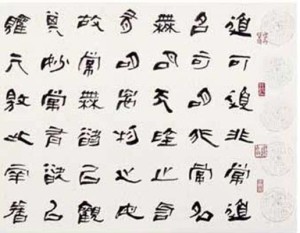 道可道非常道
名可名非常名
無名天地之始
有名萬物之母
故常無欲以觀
其妙常有欲以
觀其徼此兩者